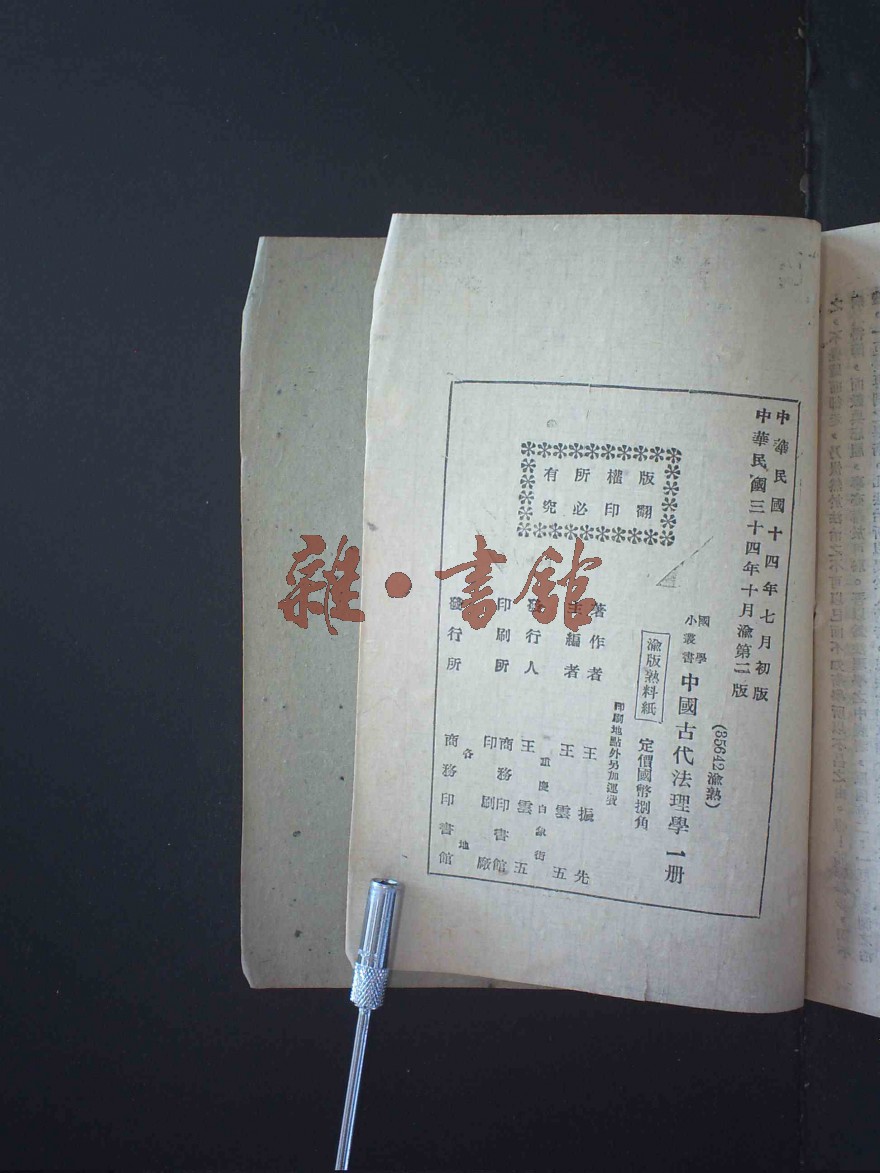 中華民國十四年七月初版
中華民國三十四年十月渝第二版
(35642渝熟)
國學小叢書 中國古代法理學 一册
渝版熟料紙 定價國幣捌角
印刷地點外另加運費
著作者 王振先
主編者 王雲五
重慶白象街
發行人 王雲五
印刷所 商務印書館印刷廠
發行所 各地商務印書館
版權所有
翻印必究
雜·書館